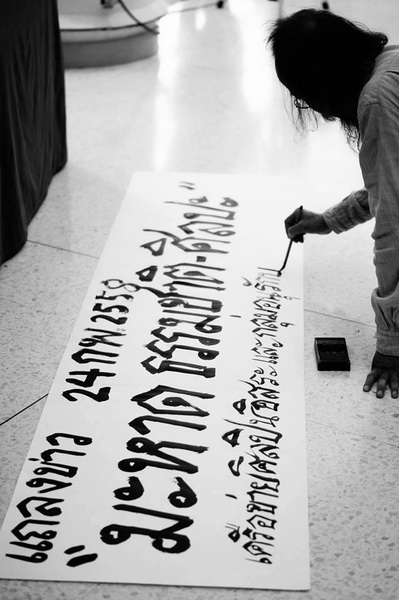 แถลงข่าว 24 กพ. 2558
"มะหาด ธรรมชาติ-ศิลปะ"
เครือข่ายศิลปินอิสระและกลุ่มอนุรัก